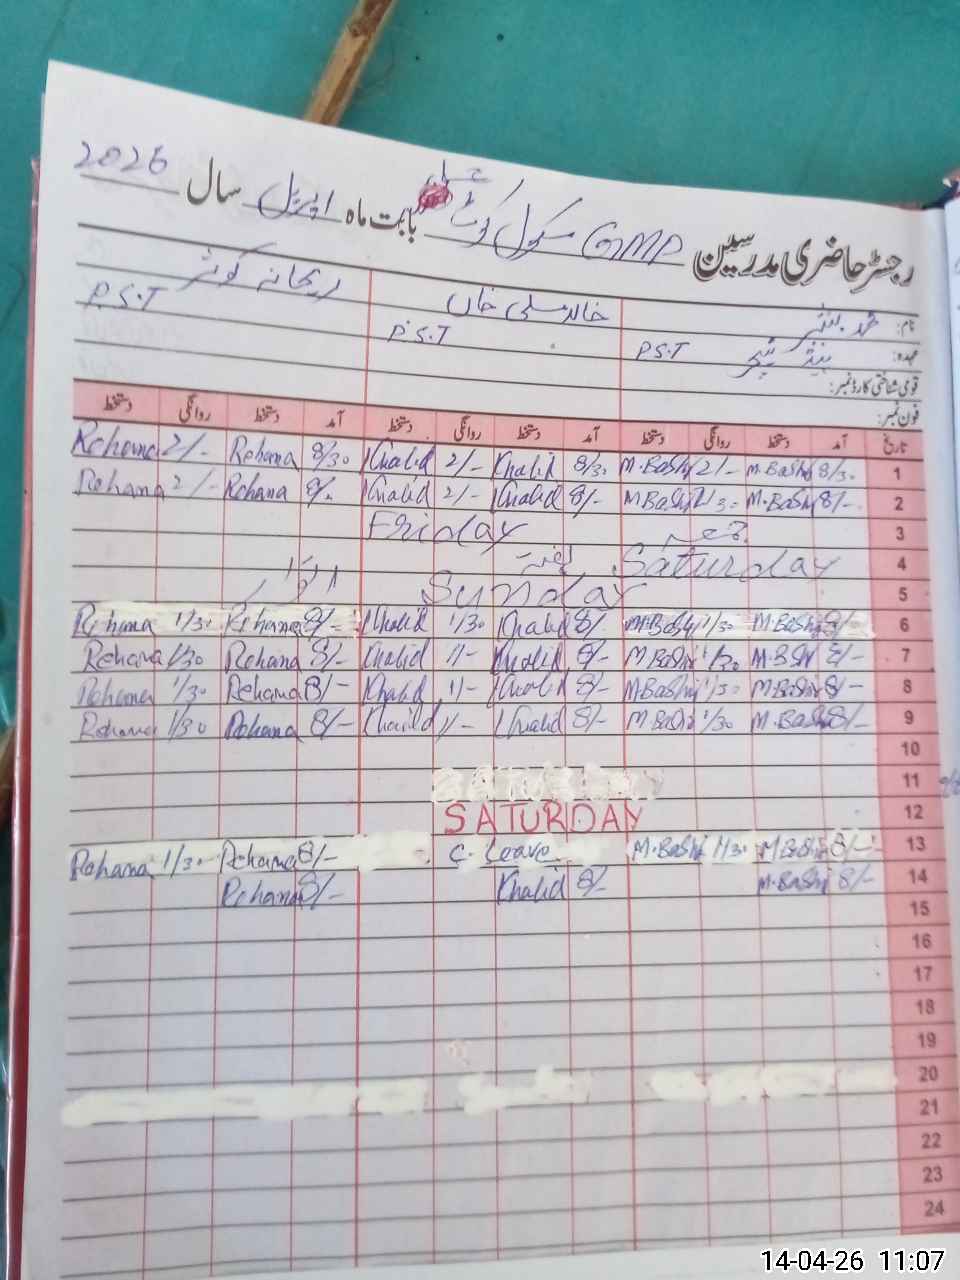 رجسٹر حاضری مدرسین GMP سکول کوٹ بابت ماہ اپریل سال 2026
نام: محمد بشیر خالد علی خان ریحانہ کوثر
عہدہ: ہیڈ ٹیچر P.S.T P.S.T P.S.T
قومی شناختی کارڈ نمبر:
فون نمبر:
تاریخ آمد دستخط روانگی دستخط آمد دستخط روانگی دستخط آمد دستخط روانگی دستخط
Rehana 2/- Rehana 8/30 Khalid 2/- Khalid 8/30 M.Bashi 2/- M.Bashi 8/30 1
Rehana 2/- Rehana 8/- Khalid 2/- Khalid 8/- M.Bashi M.Bashi 8/- 2
Friday جمعہ 3
ہفتہ Saturday 4
اتوار Sunday 5
Rehana 1/30 Rehana 8/- Khalid 1/30 Khalid 8/- M.Bashi 1/30 M.Bashi 8/- 6
Rehana 1/30 Rehana 8/- Khalid 1/- Khalid 8/- M.Bashi 1/30 8/- 7
Rehana 1/30 Rehana 8/- Khalid 1/- Khalid 8/- M.Bashi 1/30 M.Bashi 8/- 8
Rehana 1/30 Rehana 8/- Khalid 1/- Khalid 8/- M.Bashi 1/30 M.Bashi 8/- 9
10
11
SATURDAY 12
Rehana 1/30 Rehana 8/- C. Leave M.Bashi 1/30 M.Bashi 8/- 13
Rehana 8/- Khalid 8/- M.Bashi 8/- 14
15
16
17
18
19
20
21
22
23
24
14-04-26 11:07